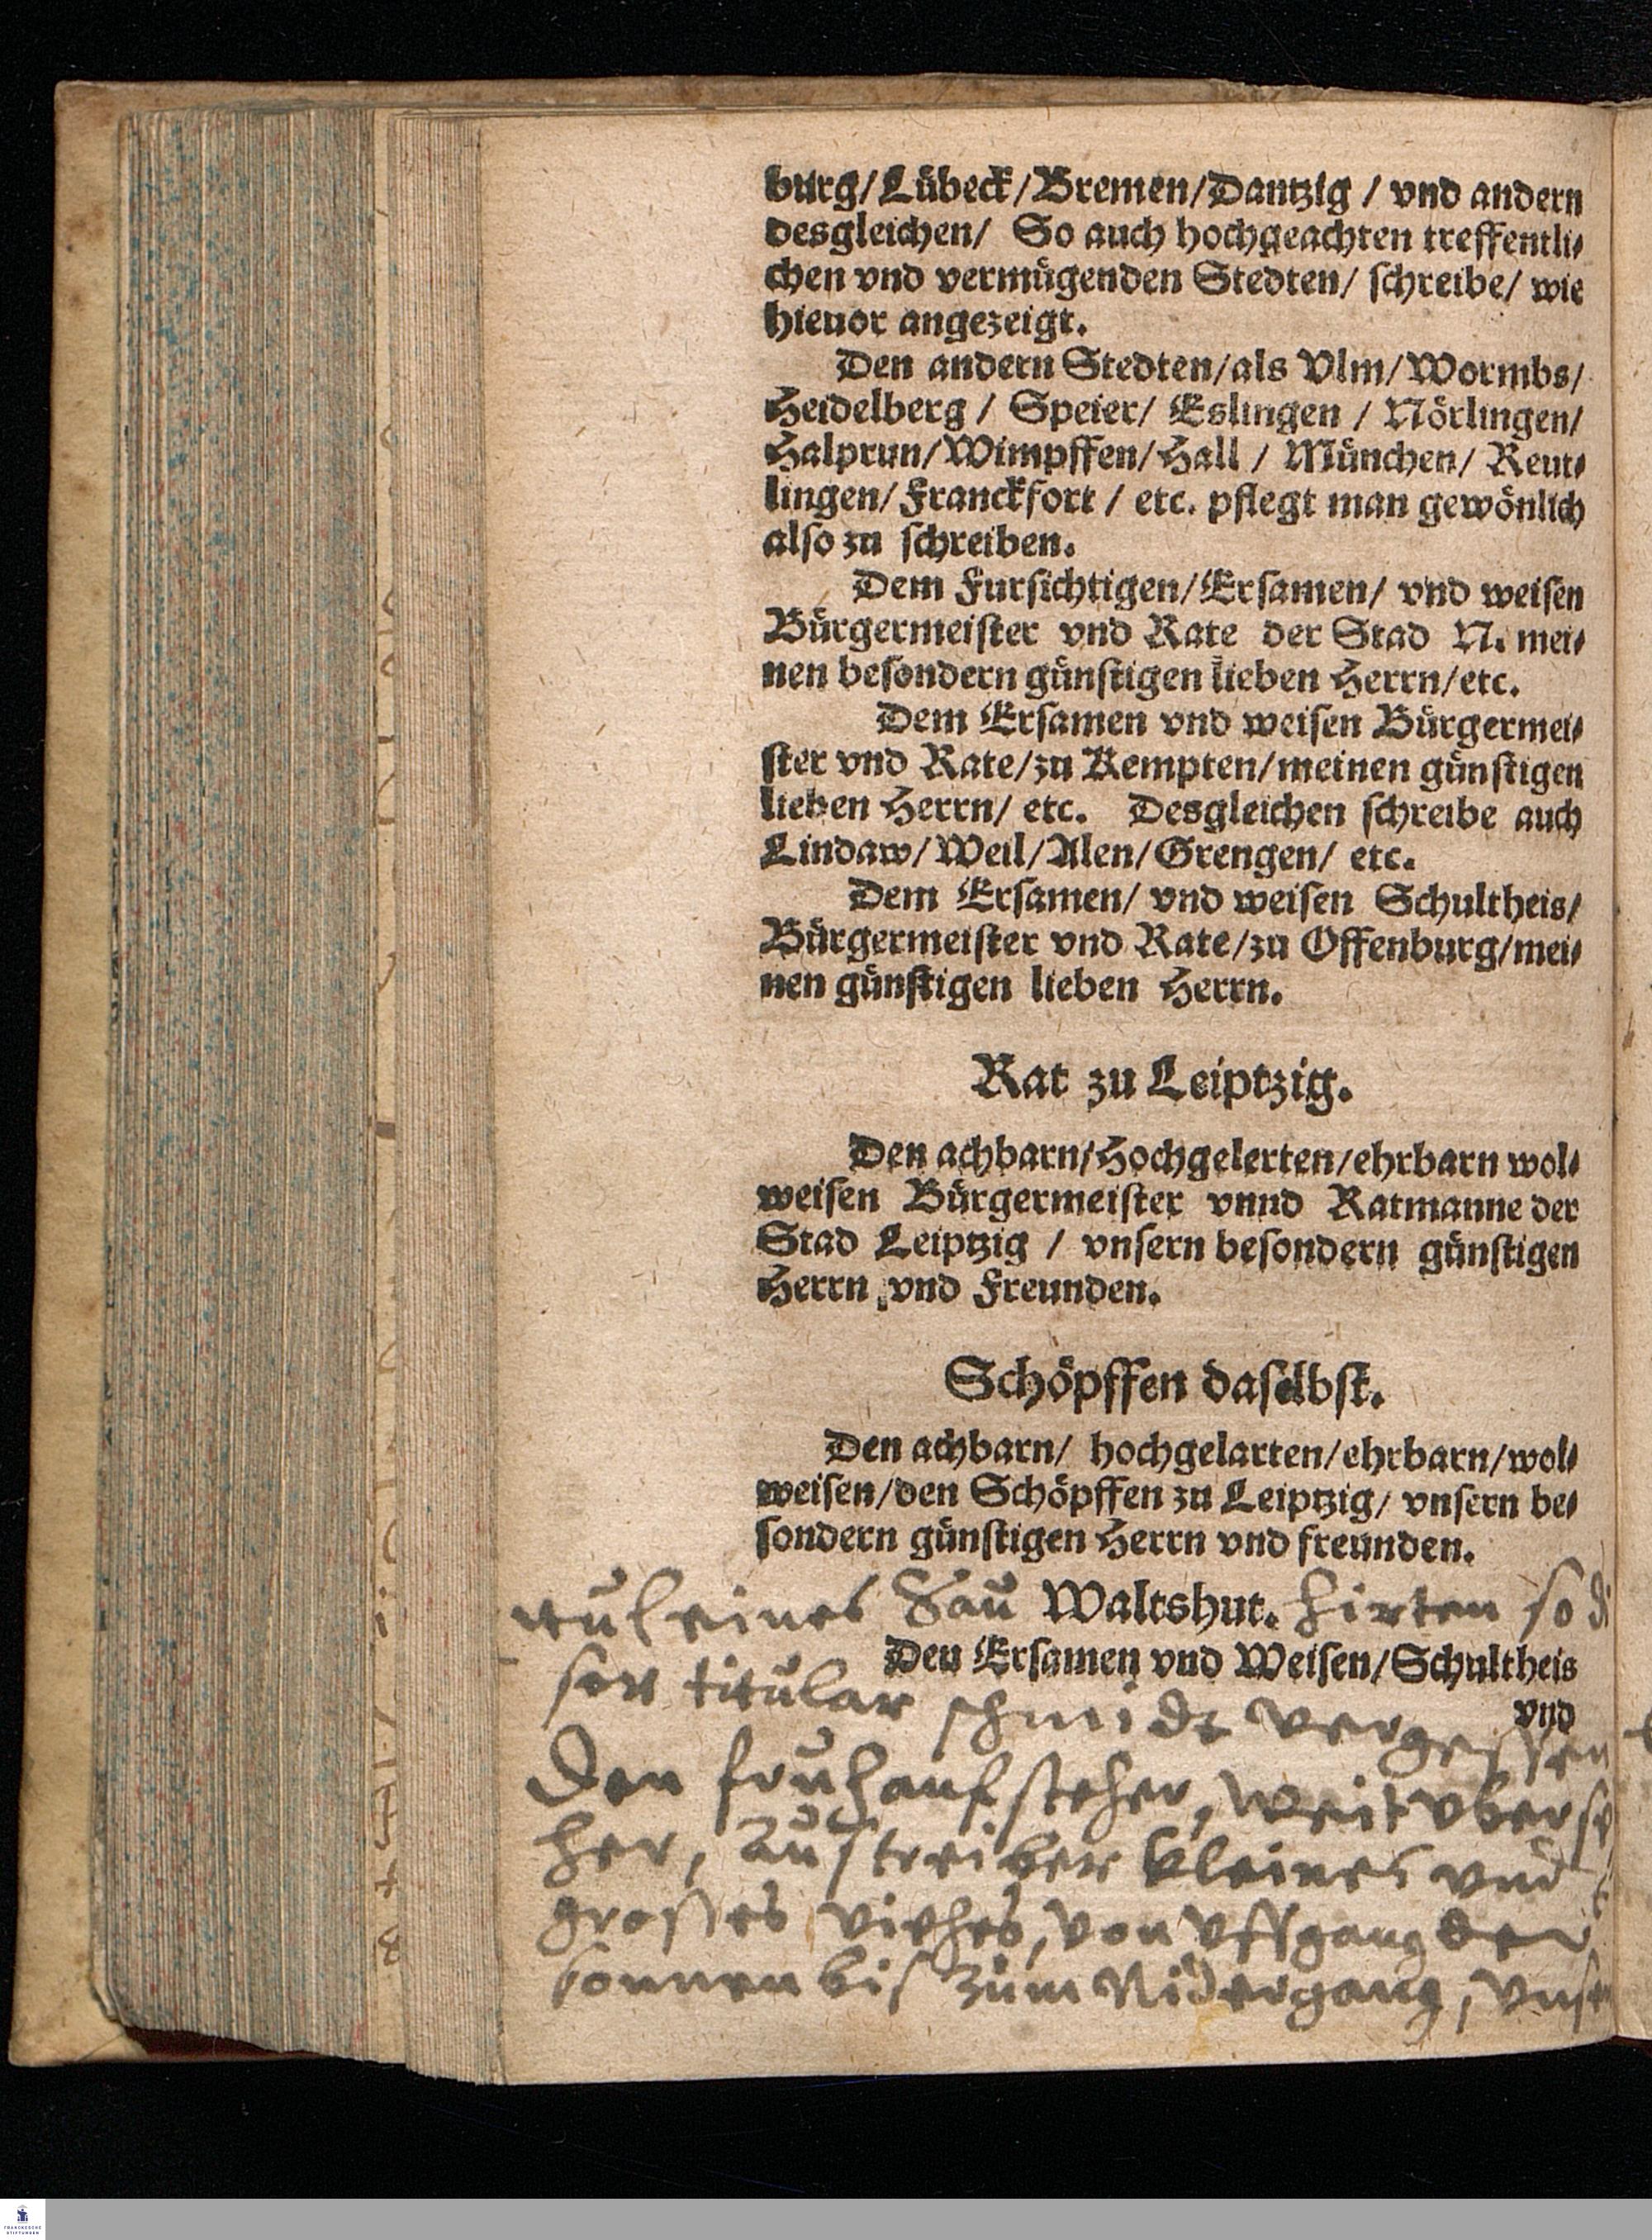 burg/Lübeck/Bremen/Dantzig / vnd andern
desgleichen/ So auch hochgeachten treffentli⸗
chen vnd vermügenden Stedten/ schreibe/ wie
hieuor angezeigt.
Den andern Stedten/als Vlm/Wormbs/
Heidelberg / Speier/ Eslingen / Nörlingen/
Halprun/Wimpffen/Hall / München/ Reut⸗
lingen/Franckfort / etc. pflegt man gewönlich
also zu schreiben.
Dem Fursichtigen/Ersamen/ vnd weisen
Bürgermeister vnd Rate der Stad N. mei⸗
nen besondern günstigen lieben Herrn/etc.
Dem Ersamen vnd weisen Bürgermei⸗
ster vnd Rate/zu Kempten/meinen günstigen
lieben Herrn/ etc. Desgleichen schreibe auch
Lindaw/Weil/Alen/Grengen/ etc.
Dem Ersamen/ vnd weisen Schultheis/
Bürgermeister vnd Rate/zu Offenburg/mei⸗
nen günstigen lieben Herrn.
Rat zu Leiptzig.
Den achbarn/Hochgelerten/ehrbarn wol⸗
weisen Bürgermeister vnnd Ratmanne der
Stad Leiptzig / vnsern besondern günstigen
Herrn vnd Freunden.
Schöpffen daselbst.
Den achbarn/ hochgelarten/ehrbarn/wol⸗
weisen/den Schöpffen zu Leiptzig/ vnsern be⸗
sondern günstigen Herrn vnd freunden.
eines Sau Waltshut. hirten so di
Den Ersamen vnd Weisen/Schultheis
ser titular schmidt vergessen
vnd
Den fruhaufsteher, weit vberse
her, Austreiber kleines vnd
grosses viehes, von vffgang der
sonnen bis zum Nidergang, vnse